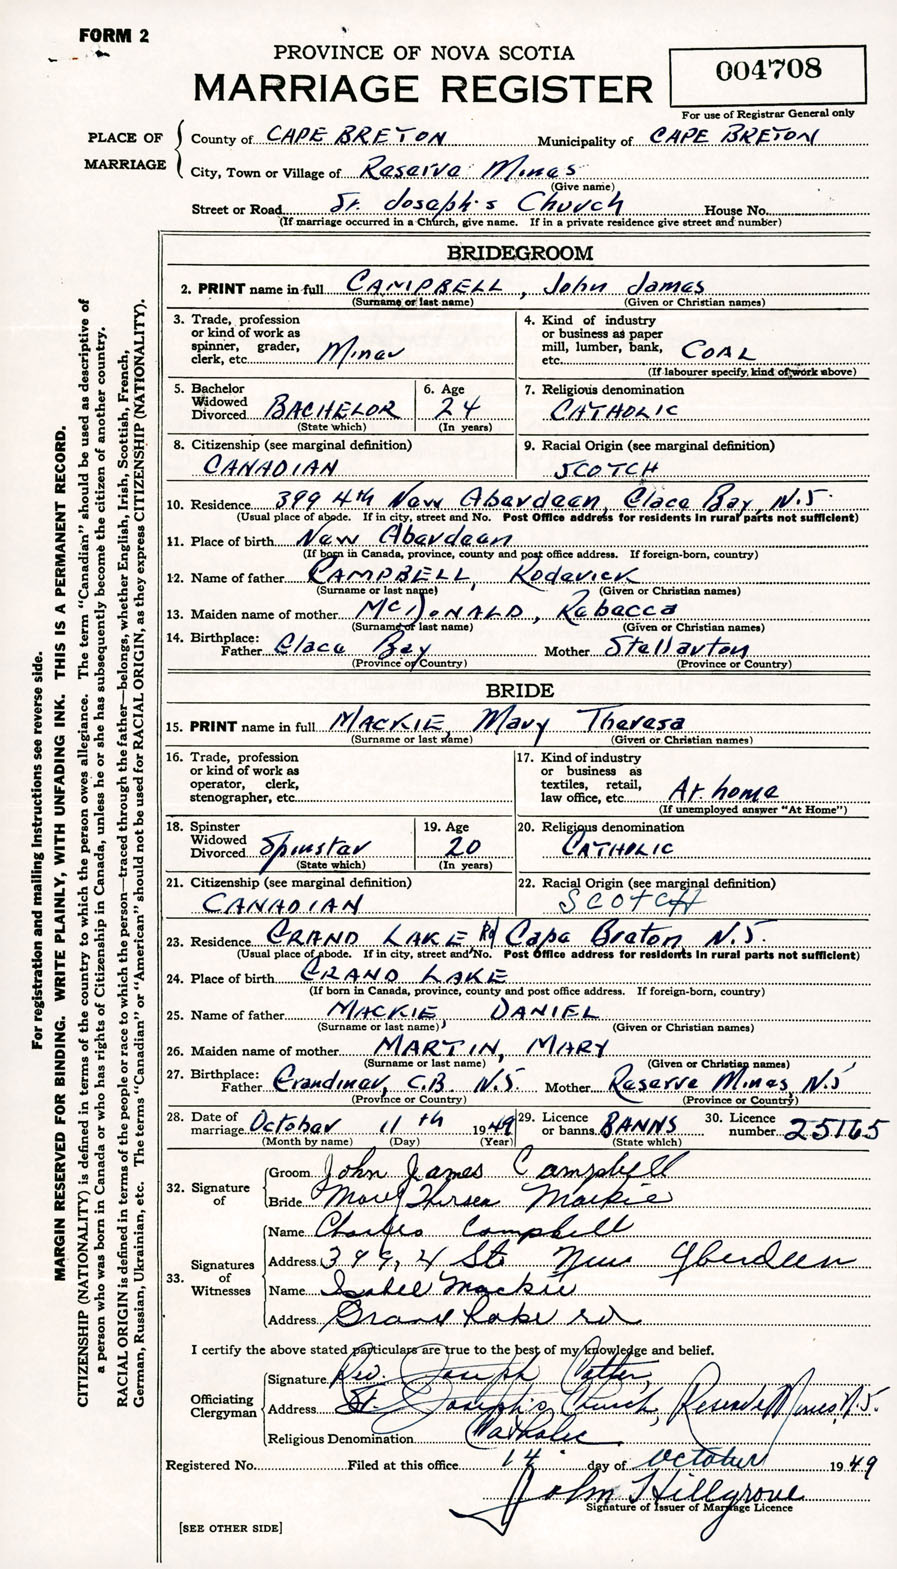 FORM 2
PROVINCE OF NOVA SCOTIA
MARRIAGE REGISTER
004708
For use of Registrar General only
PLACE OF MARRIAGE
County of CAPE BRETON Municipality of CAPE BRETON
City, Town or Village of Reserve Mines
(Give name)
Street or Road St. Joseph's Church House No.
(If marriage occurred in a Church, give name. If in a private residence give street and number)
BRIDEGROOM
2. PRINT name in full CAMPBELL, John James
(Surname or last name) (Given or Christian names)
3. Trade, profession or kind of work as spinner, grader, clerk, etc. Miner
4. Kind of industry or business as paper mill, lumber, bank, etc. COAL
(If labourer specify, kind of work above)
5. Bachelor Widowed Divorced BACHELOR
(State which)
6. Age 24
(In years)
7. Religious denomination CATHOLIC
8. Citizenship (see marginal definition) CANADIAN
9. Racial Origin (see marginal definition) SCOTCH
10. Residence 399 4th New Aberdeen, Glace Bay, N.S.
(Usual place of abode. If in city, street and No. Post Office address for residents in rural parts not sufficient)
11. Place of birth New Aberdeen
(If born in Canada, province, county and post office address. If foreign-born, country)
12. Name of father CAMPBELL, Roderick
(Surname or last name) (Given or Christian names)
13. Maiden name of mother McDONALD, Rebecca
(Surname or last name) (Given or Christian names)
14. Birthplace: Father Glace Bay Mother Stellarton
(Province or Country) (Province or Country)
BRIDE
15. PRINT name in full MACKIE, Mary Theresa
(Surname or last name) (Given or Christian names)
16. Trade, profession or kind of work as operator, clerk, stenographer, etc.
17. Kind of industry or business as textiles, retail, law office, etc. At home
(If unemployed answer "At Home")
18. Spinster Widowed Divorced Spinster
(State which)
19. Age 20
(In years)
20. Religious denomination CATHOLIC
21. Citizenship (see marginal definition) CANADIAN
22. Racial Origin (see marginal definition) SCOTCH
23. Residence GRAND LAKE Rd Cape Breton N.S.
(Usual place of abode. If in city, street and No. Post Office address for residents in rural parts not sufficient)
24. Place of birth GRAND LAKE
(If born in Canada, province, county and post office address. If foreign-born, country)
25. Name of father MACKIE, DANIEL
(Surname or last name) (Given or Christian names)
26. Maiden name of mother MARTIN, MARY
(Surname or last name) (Given or Christian names)
27. Birthplace: Father C.B. N.S. Mother Reserve Mines, N.S
(Province or Country) (Province or Country)
28. Date of marriage October 11th 1949
(Month by name) (Day) (Year)
29. Licence or banns BANNS
(State which)
30. Licence number 25165
32. Signature of
Groom John James Campbell
Bride Mary Theresa Mackie
33. Signatures of Witnesses
Name Charles Campbell
Address 399, 4 St. New Aberdeen
Name Isabel Mackie
Address Grand Lake rd
I certify the above stated particulars are true to the best of my knowledge and belief.
Officiating Clergyman
Signature Rev. Joseph
Address St. Joseph's Church, Reserve Mines, N.S.
Religious Denomination Catholic
Registered No. Filed at this office 14 day of October 1949
John Hillgrove
Signature of Issuer of Marriage Licence
[SEE OTHER SIDE]
For registration and mailing instructions see reverse side.
MARGIN RESERVED FOR BINDING. WRITE PLAINLY, WITH UNFADING INK. THIS IS A PERMANENT RECORD.
CITIZENSHIP (NATIONALITY) is defined in terms of the country to which the person owes allegiance. The term "Canadian" should be used as descriptive of
a person who was born in Canada or who has rights of Citizenship in Canada, unless he or she has subsequently become the citizen of another country.
RACIAL ORIGIN is defined in terms of the people or race to which the person—traced through the father—belongs, whether English, Irish, Scottish, French,
German, Russian, Ukrainian, etc. The terms "Canadian" or "American" should not be used for RACIAL ORIGIN, as they express CITIZENSHIP (NATIONALITY).